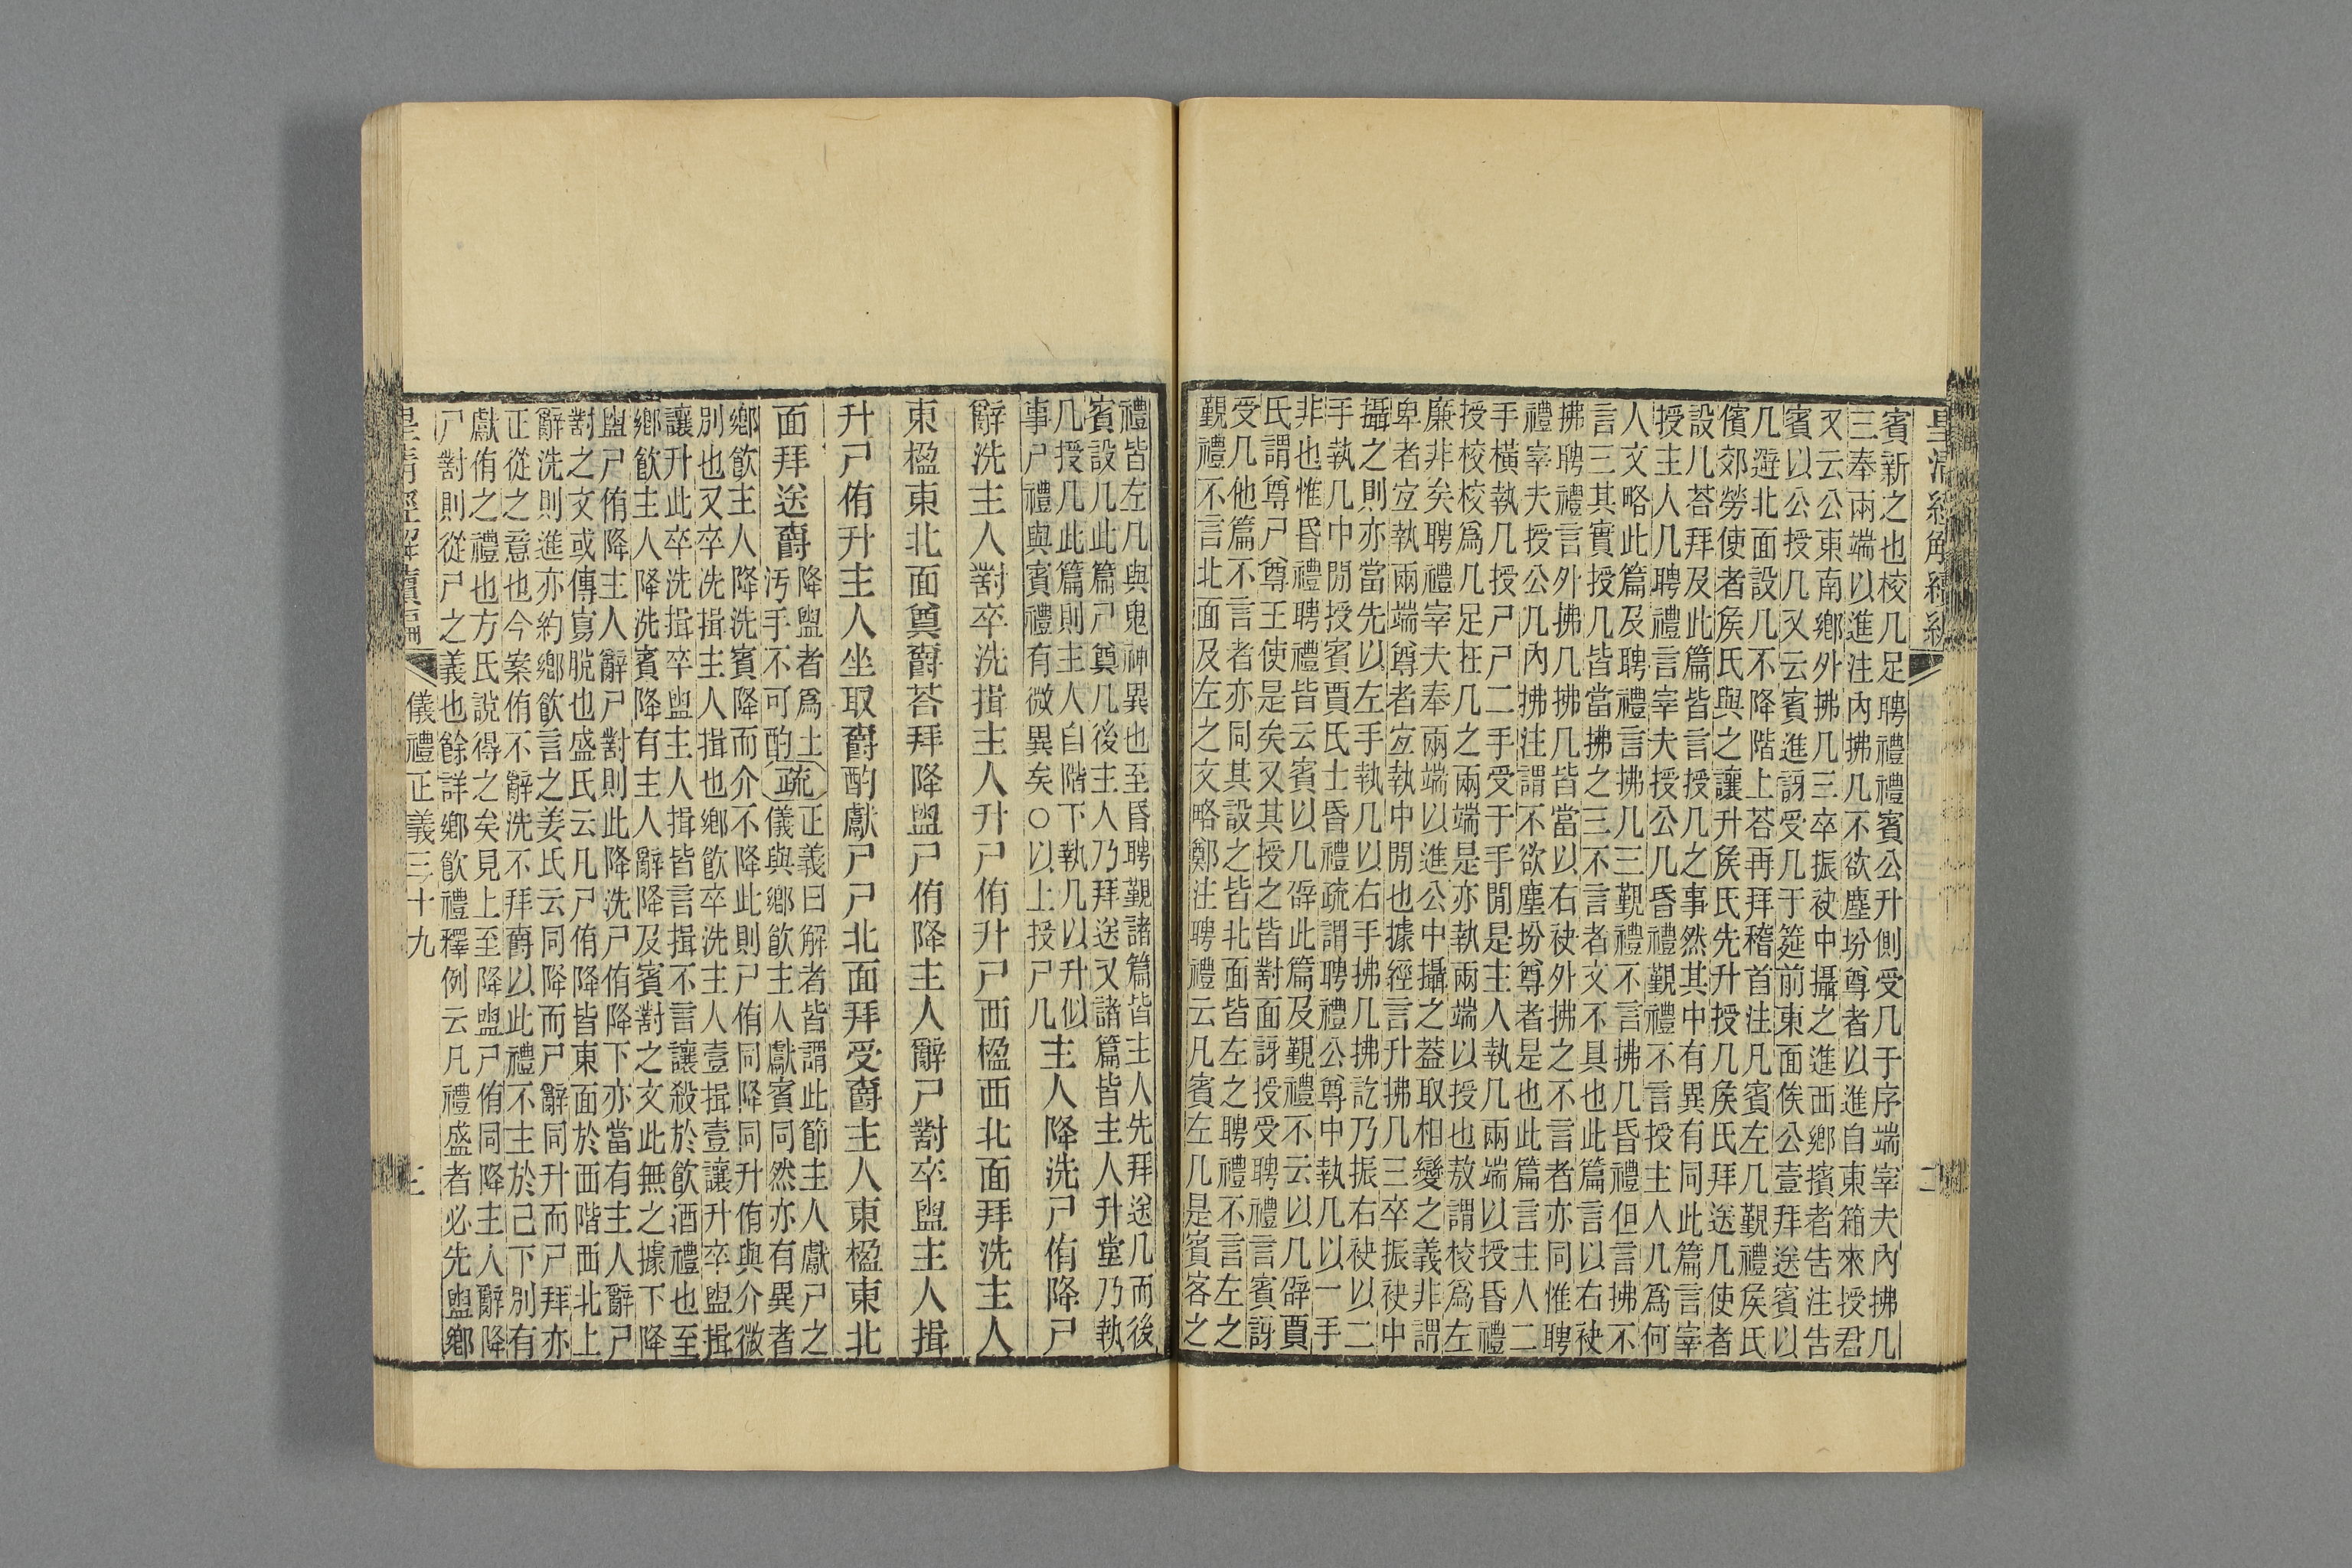 皇清經解續編
二
賓新之也校几足聘禮禮賓公升側受几于序端宰夫內拂几
三奉兩端以進注內拂几不欲塵坋尊者以進自東箱來授君
又云公東南鄉外拂几三卒振袂中攝之進西鄉擯者告注告
賓以公授几又云賓進訝受几于筵前東面俟公壹拜送賓以
几避北面設几不降階上荅再拜稽首注凡賓左几覲禮矦氏
儐郊勞使者矦氏與之讓升矦氏先升授几矦氏拜送几使者
設几荅拜及此篇皆言授几之事然其中有異有同此篇言宰
授主人几聘禮言宰夫授公几昏禮覲禮不言授主人几爲何
人文略此篇及聘禮言拂几三覲禮不言拂几昏禮但言拂不
言三其實授几皆當拂之三不言者文不具也此篇言以右袂
拂聘禮言外拂几拂几皆當以右袂外拂之不言者亦同惟聘
禮宰夫授公几內拂注謂不欲塵坋尊者是也此篇言主人二
手橫執几授尸尸二手受于手閒是主人執几兩端以授昏禮
授校校爲几足在几之兩端是亦執兩端以授也敖謂校爲左
廉非矣聘禮宰夫奉兩端以進公中攝之蓋取相變之義非謂
卑者宜執兩端尊者宜執中閒也據經言升拂几三卒振袂中
攝之則亦當先以左手執几以右手拂几拂訖乃振右袂以二
手執几中閒授賓賈氏士昏禮疏謂聘禮公尊中執几以一手
非也惟昏禮聘禮皆云賓以几辟此篇及覲禮不云以几辟賈
氏謂尊尸尊王使是矣又其授之皆對面訝授受聘禮言賓訝
受几他篇不言者亦同其設之皆北面皆左之聘禮不言左之
覲禮不言北面及左之文略鄭注聘禮云凡賓左几是賓客之
禮皆左几與鬼神異也至昏聘覲諸篇皆主人先拜送几而後
賓設几此篇尸奠几後主人乃拜送又諸篇皆主人升堂乃執
几授几此篇則主人自階下執几以升似
事尸禮與賓禮有微異矣○以上授尸几
主人降洗尸侑降尸
辭洗主人對卒洗揖主人升尸侑升尸西楹西北面拜洗主人
東楹東北面奠爵荅拜降盥尸侑降主人辭尸對卒盥主人揖
升尸侑升主人坐取爵酌獻尸尸北面拜受爵主人東楹東北
面拜送爵
降盥者爲土
汚手不可酌
疏
正義曰解者皆謂此節主人獻尸之
儀與鄉飲主人獻賓同然亦有異者
鄉飲主人降洗賓降而介不降此則尸侑同降同升侑與介微
別也又卒洗揖主人揖也鄉飲卒洗主人壹揖壹讓升卒盥揖
讓升此卒洗揖卒盥主人揖皆言揖不言讓殺於飲酒禮也至
鄉飲主人降洗賓降有主人辭降及賓對之文此無之據下降
盥尸侑降主人辭尸對則此降洗尸侑降下亦當有主人辭尸
對之文或傳寫脫也盛氏云凡尸侑降皆東面於西階西北上
辭洗則進亦約鄉飲言之姜氏云同降而尸辭同升而尸拜亦
正從之意也今案侑不辭洗不拜爵以此禮不主於己下別有
獻侑之禮也方氏說得之矣見上至降盥尸侑同降主人辭降
尸對則從尸之義也餘詳鄉飲禮釋例云凡禮盛者必先盥鄉
皇清經解續編
儀禮正義三十九